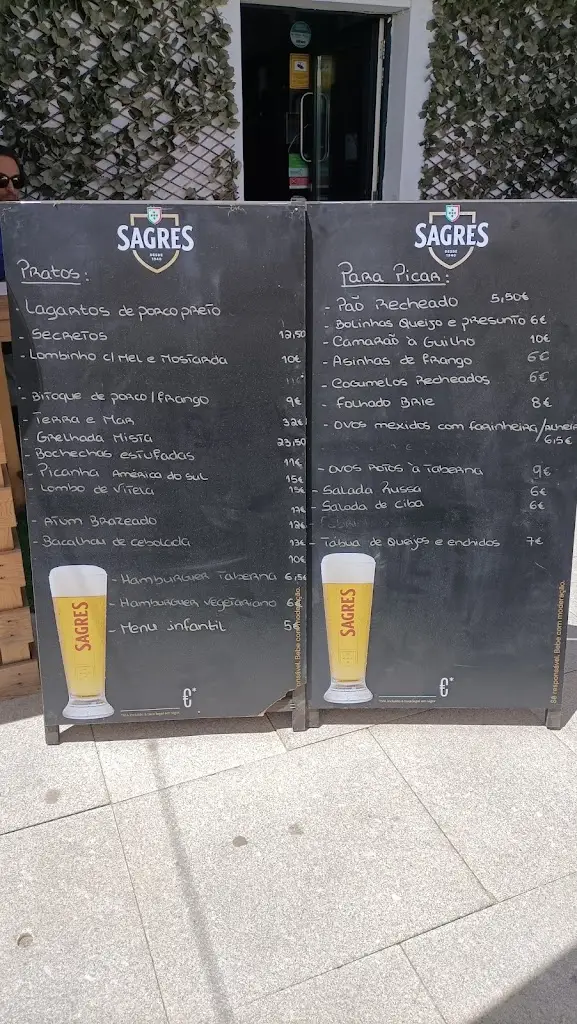 SAGRES
DESDE 1940
Pratos:
- Lagartos de porco preto
- Secretos 12,50
- Lombinho c/ Mel e Mostarda 10€
11€
- Bitoque de porco / frango 9€
- Terra e Mar 32€
- Grelhada Mista 23,50
- Bochechas estufadas 11€
- Picanha América do sul 15€
- Lombo de Vitela 15€
12€
- Atum Brazeado 12€
- Bacalhau de cebolada 13€
10€
- Hamburguer Taberna 6,5€
- Hamburguer vegetariano 6€
- Menu infantil 5€
SAGRES
€*
SAGRES
DESDE 1940
Para Picar:
- Pão Recheado 5,50€
- Bolinhas Queijo e presunto 6€
- Camarão à Guilho 10€
- Asinhas de frango 6€
- Cogumelos Recheados 6€
- Folhado Brie 8€
- Ovos mexidos com farinheira/
6,5€
- Ovos Rotos à Taberna 9€
- Salada Russa 6€
- Salada de Ciba 6€
- Tábua de Queijos e enchidos 7€
SAGRES
€*
Sê responsável. Bebe com moderação.